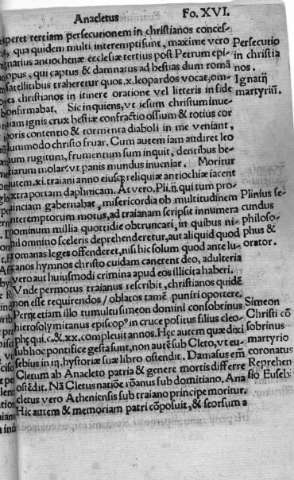 Anacletus Fo.XVI.
esperet tertiam persecutionem in christianos conces-
qua quidem multi interemptisunt, maxime vero
ignatius antiochenæ ecclesiæ tertius post Petrum epi-
oppus, qui captus & damnatus ad bestias dum romã
satellitibus traheretur quos .x. leopardos vocat, om-
christianos in itinere oratione vel litteris in fide
bonfirmabat. Sic inquiens, vt iesum christum inue-
niam ignis crux bestiæ confractio ossium & totius cor
poris contentio & tormenta diaboli in me veniant,
modo christo fruar. Cum autem iam audiret leo
num rugitum, frumentum sum inquit, dentibus be-
tiarum molar vt panis mundus inueniar. Moritur
autem .xi. traiani anno eiusq; reliquiæ antiochiæ iacent
extra portam daphnicam. At vero Plin. qui tum pro-
uinciam gubernabat, misericordia ob multitudinem
interemptorum motus, ad traianum scripsit innumera
hominum millia quottidie obtruncari, in quibus ni-
hil omnino sceleris deprehenderetur, aut aliquid quod
romanas leges offenderet, nisi hic solum quod ante lu-
canos hymnos christo cuidam canerent deo, adulteria
vero aut huiusmodi crimina apud eos illicita haberi.
Vnde permotus traianus rescribit, christianos quidẽ
non esse requirendos / oblatos tamẽ puniri oportere.
Perq; etiam illo tumultu simeon domini consobrinus
hierosolymitanus episcop⁹ in cruce positus filius cleo-
phę qui .c.&.xx. compleuit annos. Hęc autem quæ dixi
sub hoc pontifice gesta sunt, non autẽ sub Cleto, vt eu-
sebius in .iij. hystoriæ suæ libro ostendit. Damasus em̃
Cletum ab Anacleto patria & genere mortis differre
ostẽdit. Nã Cletus natiõe rõanus sub domitiano, Ana
cletus vero Atheniensis sub traiano principe moritur.
Hic autem & memoriam patri cõposuit, & seorsum a
Persecutio
in christia
nos.
Ignatij
martyriũ.
Plinius se-
cundus
philoso-
phus &
orator.
Simeon
Christi cõ
sobrinus
martyrio
coronatus
Reprehen
sio Eusebij